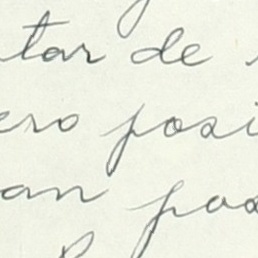 tar de
ero posi
an pos